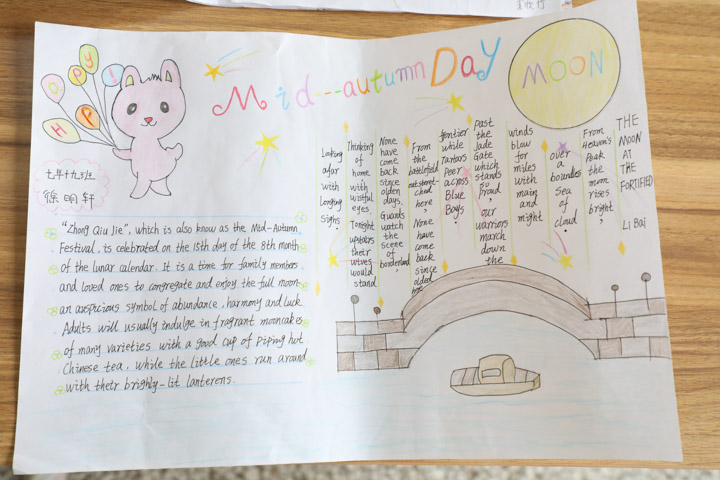 HAPPY!
Mid---autumn Day
MOON
七年十九班
徐明轩
"Zhong Qiu Jie", which is also know as the Mid-Autumn
Festival, is celebrated on the 15th day of the 8th month
of the lunar calendar. It is a time for family members
and loved ones to congregate and enjoy the full moon-
an auspicious symbol of abundance, harmony and luck.
Adults will usually indulge in fragrant mooncakes
of many varieties with a good cup of piping hot
Chinese tea, while the little ones run around
with their brighly-lit lanterens.
THE MOON AT THE FORTIFIED
Li Bai
From Heaven's Peak the moon rises bright,
over a boundless sea of cloud.
winds blow for miles with main and might
past the Jade Gate which stands so proud, our warriors march down the
fentier while Tartars peer across Blue Bays.
From the battlefield outstretched here, None have come back since olded
None have come back since olden days. Guards watch the scene of borderland,
Thinking of home with wistful eyes. Tonight upstairs their wives would stand
Looking afar with longing sighs.